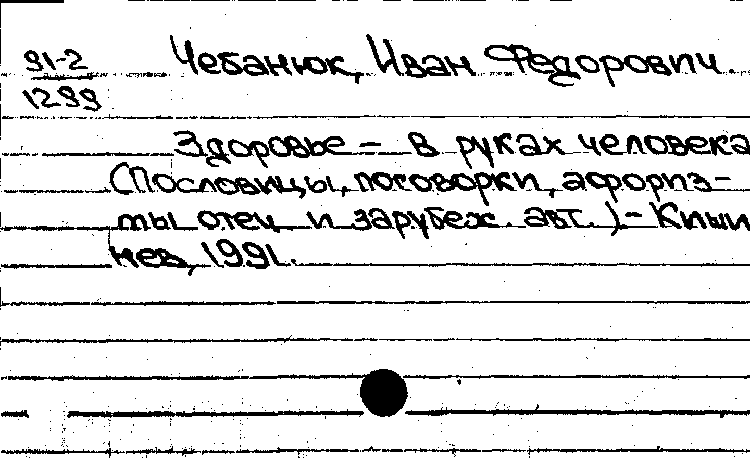 91-2
1299
Чебанюк, Иван Федорович.
Здоровье – в руках человека
(Пословицы, поговорки, афориз-
мы отеч. и зарубеж. авт.) – Киши
нев, 1991.